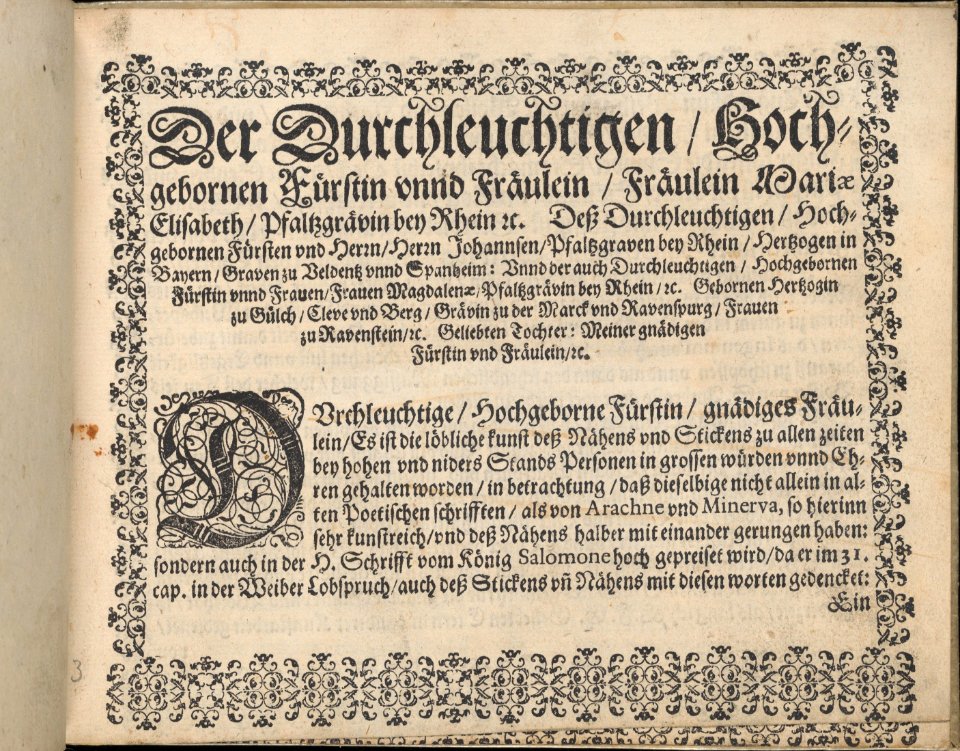 Der Durchleuchtigen / Hoch-
gebornen Fürstin vnnd Fräulein / Fräulein Mariæ
Elisabeth / Pfaltzgrävin bey Rhein ꝛc. Deß Durchleuchtigen / Hoch-
gebornen Fürsten vnd Herrn / Herꝛn Johannsen / Pfaltzgraven bey Rhein / Hertzogen in
Bayern / Graven zu Veldentz vnnd Spanheim: Vnnd der auch Durchleuchtigen / Hochgebornen
Fürstin vnnd Frauen / Frauen Magdalenæ / Pfaltzgrävin bey Rhein / ꝛc. Gebornen Hertzogin
zu Gülch / Cleve vnd Berg / Grävin zu der Marck vnd Ravenspurg / Frauen
zu Ravenstein / ꝛc. Geliebten Tochter: Meiner gnädigen
Fürstin vnd Fräulein / ꝛc.
DVrchleuchtige / Hochgeborne Fürstin / gnädiges Fräu-
lein / Es ist die löbliche kunst deß Nähens vnd Stickens zu allen zeiten
bey hohen vnd niders Stands Personen in grossen würden vnnd Eh-
ren gehalten worden / in betrachtung / daß dieselbige nicht allein in al-
ten Poetischen schrifften / als von Arachne vnd Minerva, so hierinn
sehr kunstreich / vnd deß Nähens halber mit einander gerungen haben:
sondern auch in der H. Schrifft vom König Salomone hoch gepreiset wird / da er im 31.
cap. in der Weiber Lobspruch / auch deß Stickens vñ Nähens mit diesen worten gedencket:
Ein
3